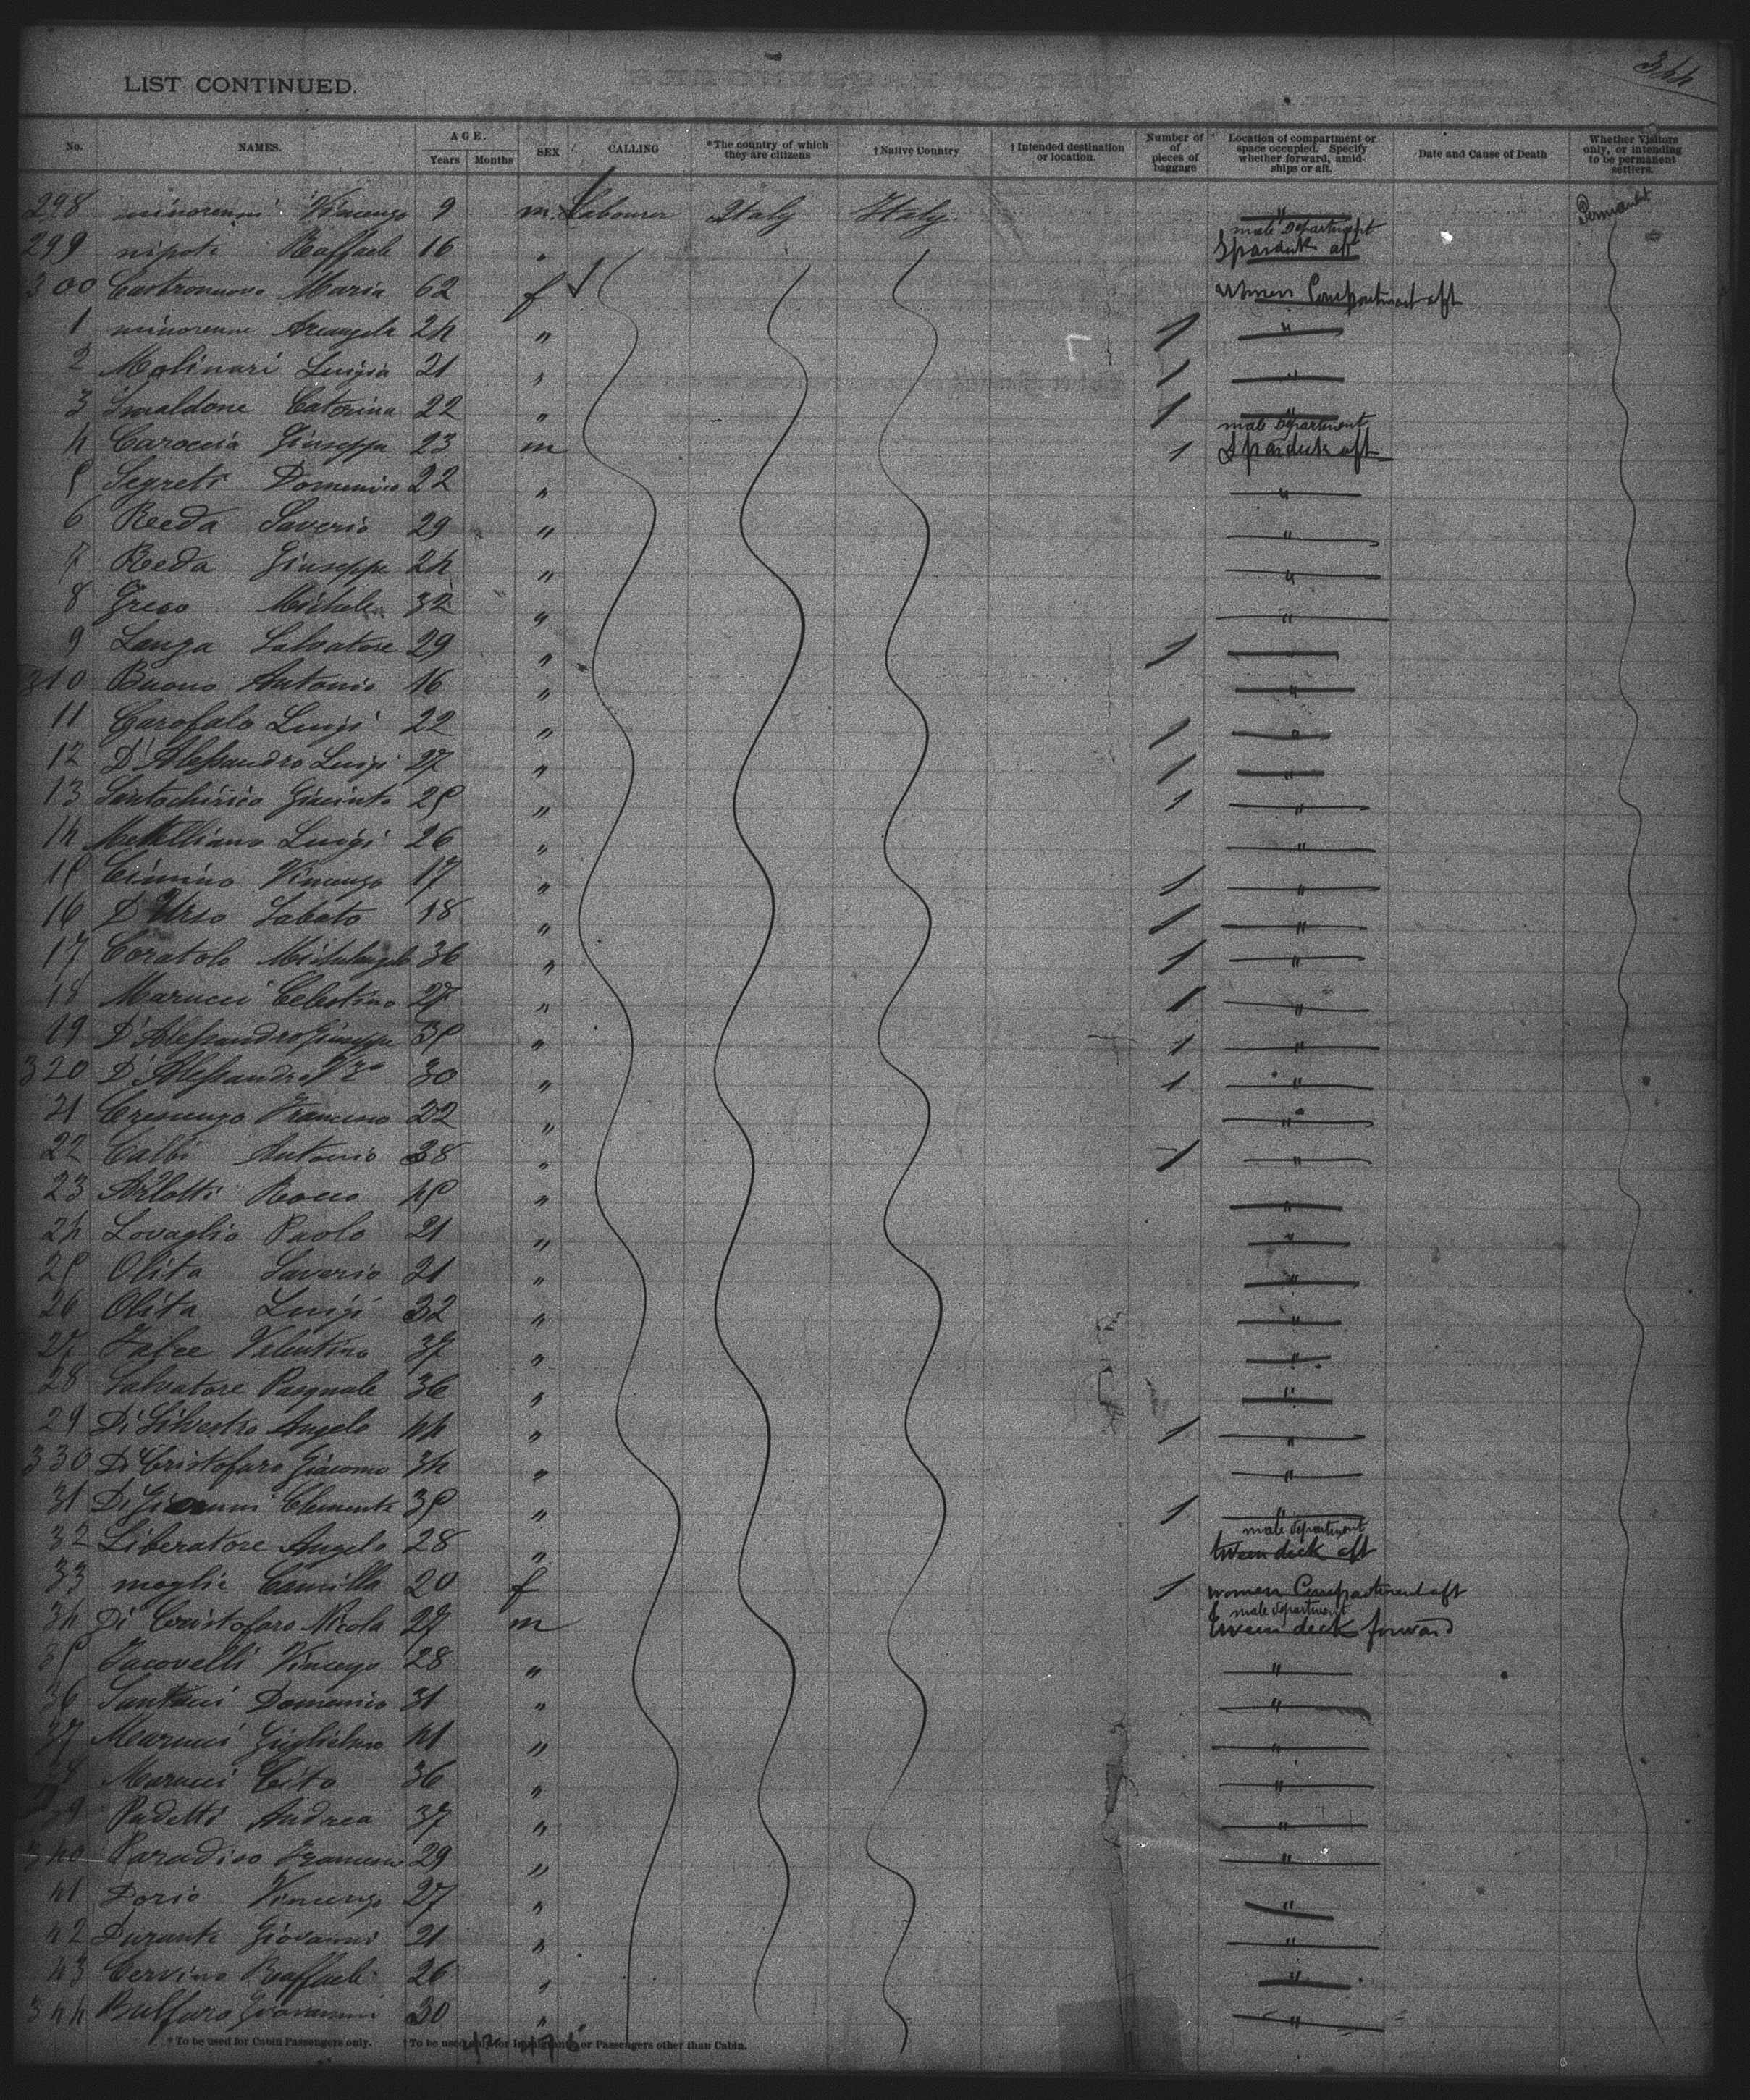 344
LIST CONTINUED.
No. NAMES. AGE. Years Months SEX CALLING *The country of which they are citizens †Native Country †Intended destination or location. Number of pieces of baggage Location of compartment or space occupied. Specify whether forward, amidships or aft. Date and Cause of Death Whether Visitors only, or intending to be permanent settlers.
298 minorenni Vincenzo 9 m Labourer Italy Italy. "
299 nipote Raffaele 16 " male Department Spardeck aft
300 Castronuovo Maria 62 f women Compartment aft
1 minorenne Arcangela 24 " 1 "
2 Molinari Luigia 21 " 1 "
3 Smaldone Caterina 22 " 1 "
4 Caroccia Giuseppe 23 m 1 male Department Spardeck aft
5 Segreti Domenico 22 " "
6 Reda Saverio 29 " "
7 Reda Giuseppe 24 " "
8 Greco Michele 32 " "
9 Lanza Salvatore 29 " 1 "
310 Buono Antonio 16 " "
11 Garofalo Luigi 22 " 1 "
12 D'Alessandro Luigi 27 " 1 "
13 Santochirico Giacinto 25 " 1 "
14 Luigi 26 " "
15 Cimino Vincenzo 17 " 1 "
16 D'Urso Sabato 18 " 1 "
17 Coratolo Michelangelo 36 " 1 "
18 Marucci Celestino 27 " 1 "
19 D'Alessandro Giuseppe 35 " 1 "
320 D'Alessandro 30 " 1 "
21 Crescenzo Francesco 22 " "
22 Calbi Antonio 38 " 1 "
23 Arlotti Rocco 45 " "
24 Lovaglio Paolo 21 " "
25 Olita Saverio 21 " "
26 Olita Luigi 32 " "
27 Valentino 37 " "
28 Salvatore Pasquale 36 " "
29 Di Silvestro Angelo 44 " 1 "
330 Di Cristofaro Giacomo 34 " "
31 Di Giovanni Clemente 35 " 1 "
32 Liberatore Angelo 28 " male department tween deck aft
33 moglie Camilla 20 f 1 women Compartment aft
34 Di Cristofaro Nicola 27 m male department tween deck forward
35 Iacovelli Vincenzo 28 " "
36 Santucci Domenico 31 " "
37 Marucci Guglielmo 41 " "
38 Marucci Cito 36 " "
39 Padetti Andrea 37 " "
340 Paradiso Francesco 29 " "
41 Dorio Vincenzo 27 " "
42 Durante Giovanni 21 " "
43 Cervino Raffaele 26 " "
344 Bulfaro Giovanni 30 " "
* To be used for Cabin Passengers only. † To be used only for Immigrants, or Passengers other than Cabin.